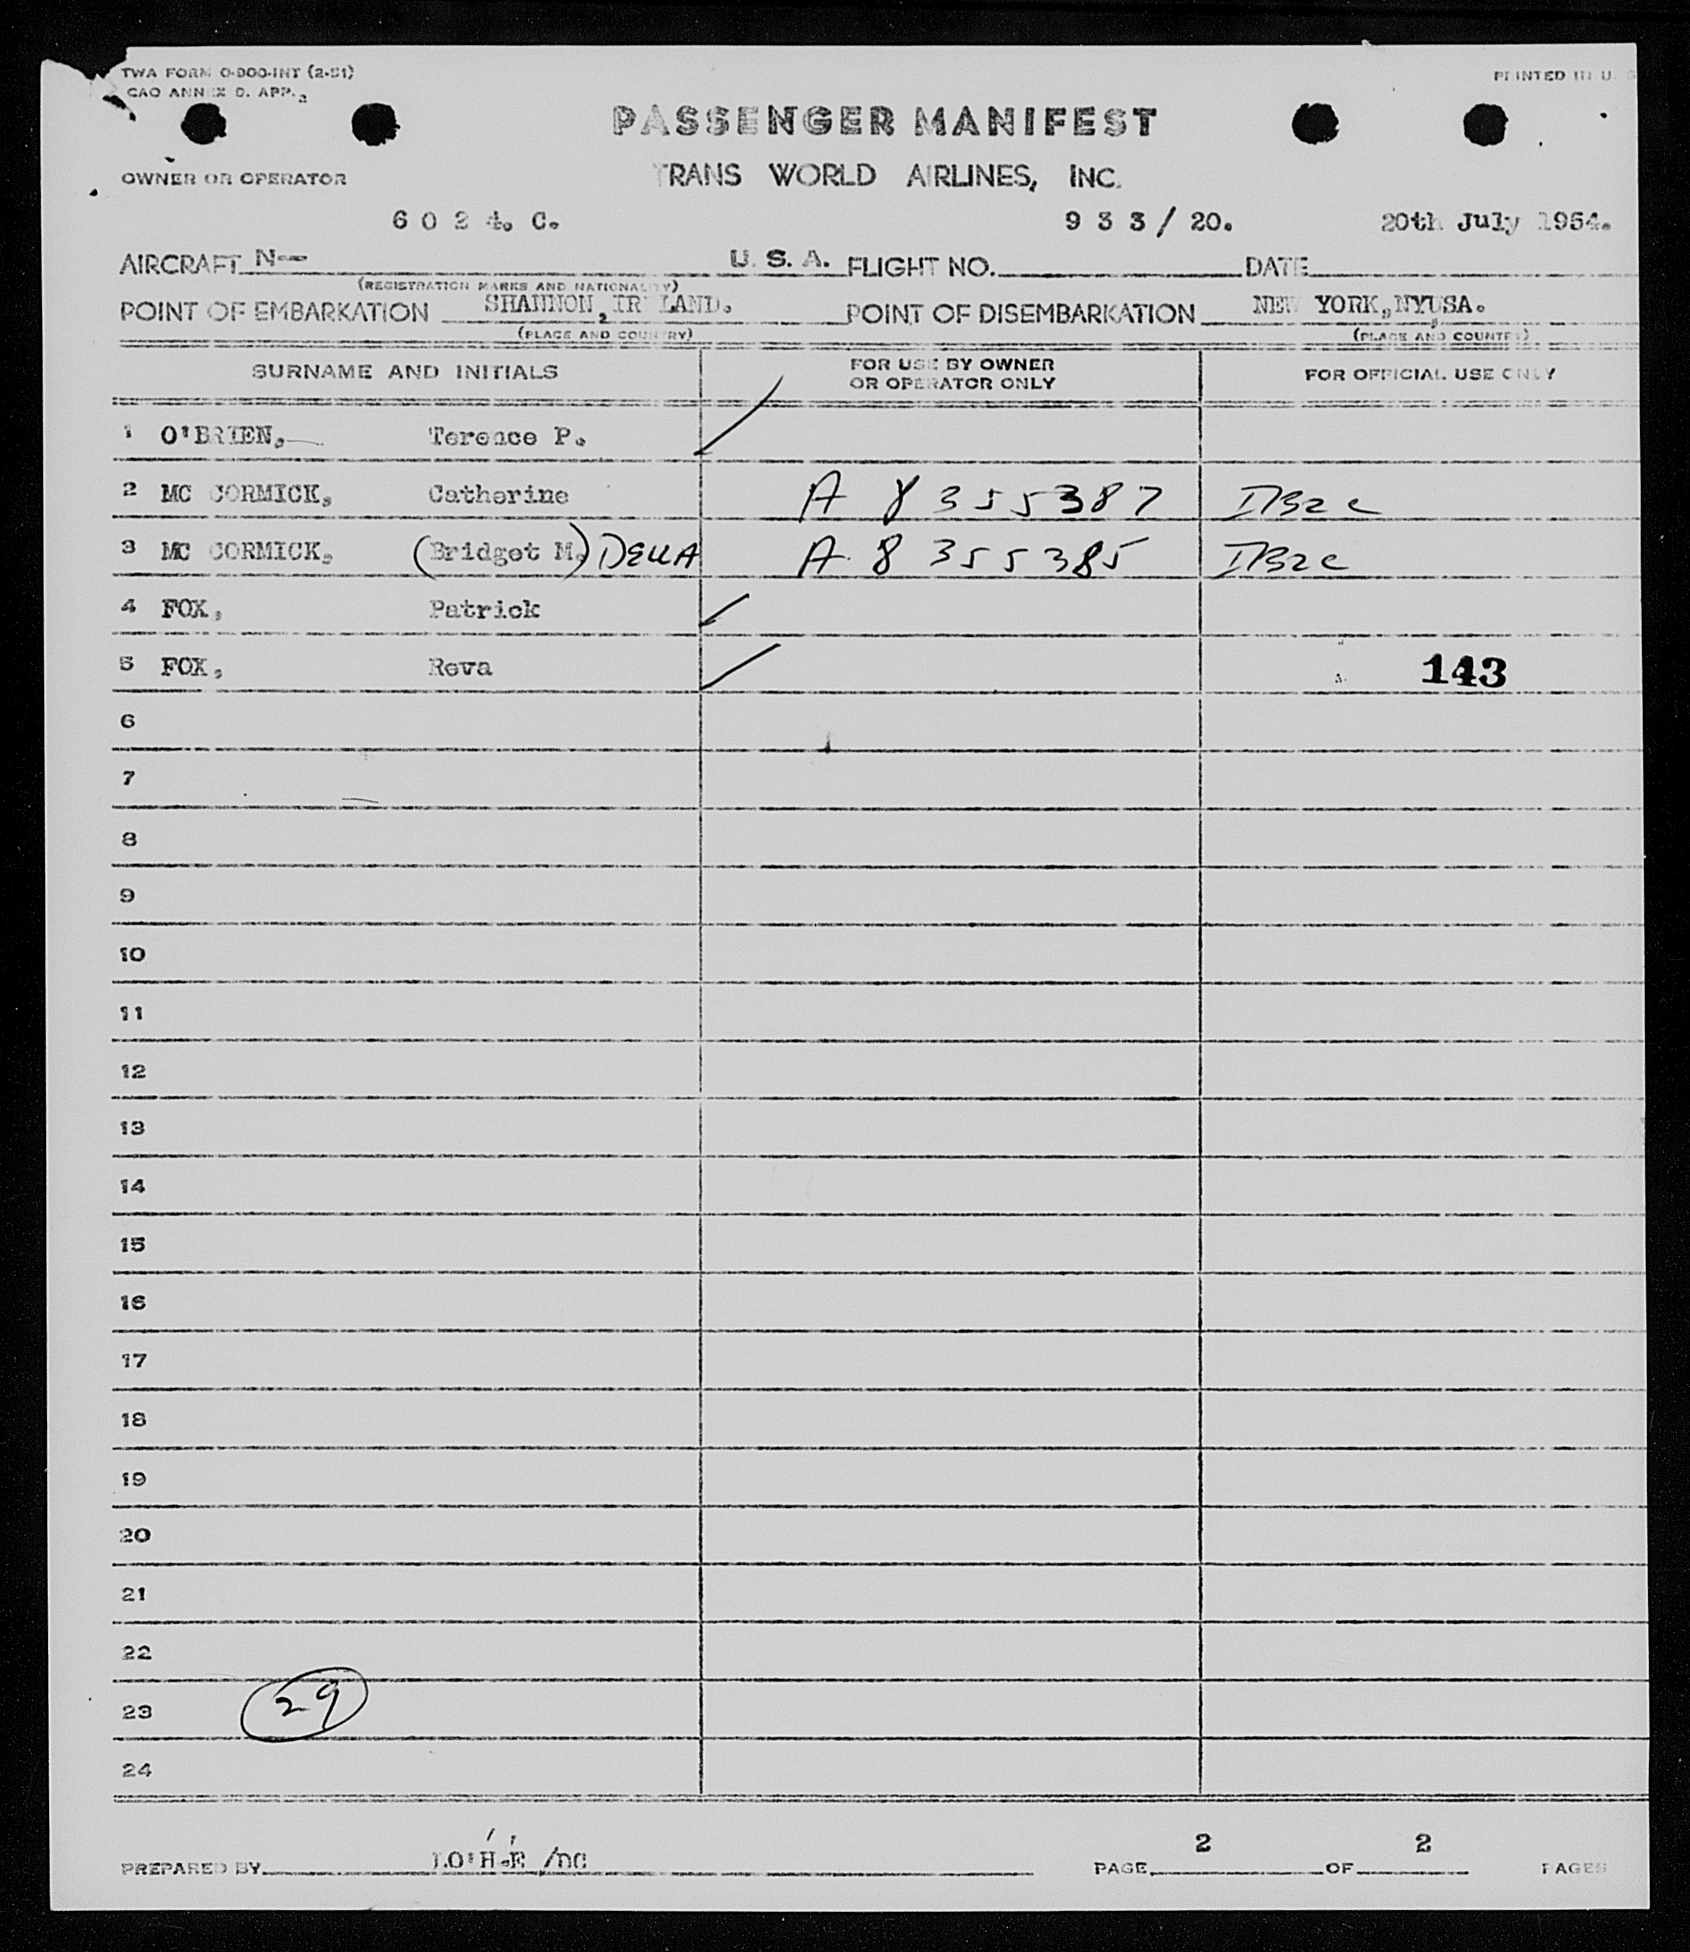 TWA FORM O-DOO-INT (2-51)
CAO ANNEX 9. APP. 2
PRINTED IN U. S
PASSENGER MANIFEST
OWNER OR OPERATOR
TRANS WORLD AIRLINES, INC.
6 0 2 4. C.
9 3 3 / 20.
20th July 1954.
AIRCRAFT N--
U. S. A.
FLIGHT NO.
DATE
(REGISTRATION MARKS AND NATIONALITY)
POINT OF EMBARKATION SHANNON, IRELAND.
POINT OF DISEMBARKATION NEW YORK, NY, USA.
(PLACE AND COUNTRY)
(PLACE AND COUNTRY)
SURNAME AND INITIALS
FOR USE BY OWNER
OR OPERATOR ONLY
FOR OFFICIAL USE ONLY
1 O'BRIEN, Terence P.
2 MC CORMICK, Catherine A 8355387
3 MC CORMICK, (Bridget M.) DELLA A 8355385
4 FOX, Patrick
5 FOX, Reva 143
6
7
8
9
10
11
12
13
14
15
16
17
18
19
20
21
22
23 29
24
PREPARED BY
PAGE 2 OF 2 PAGES